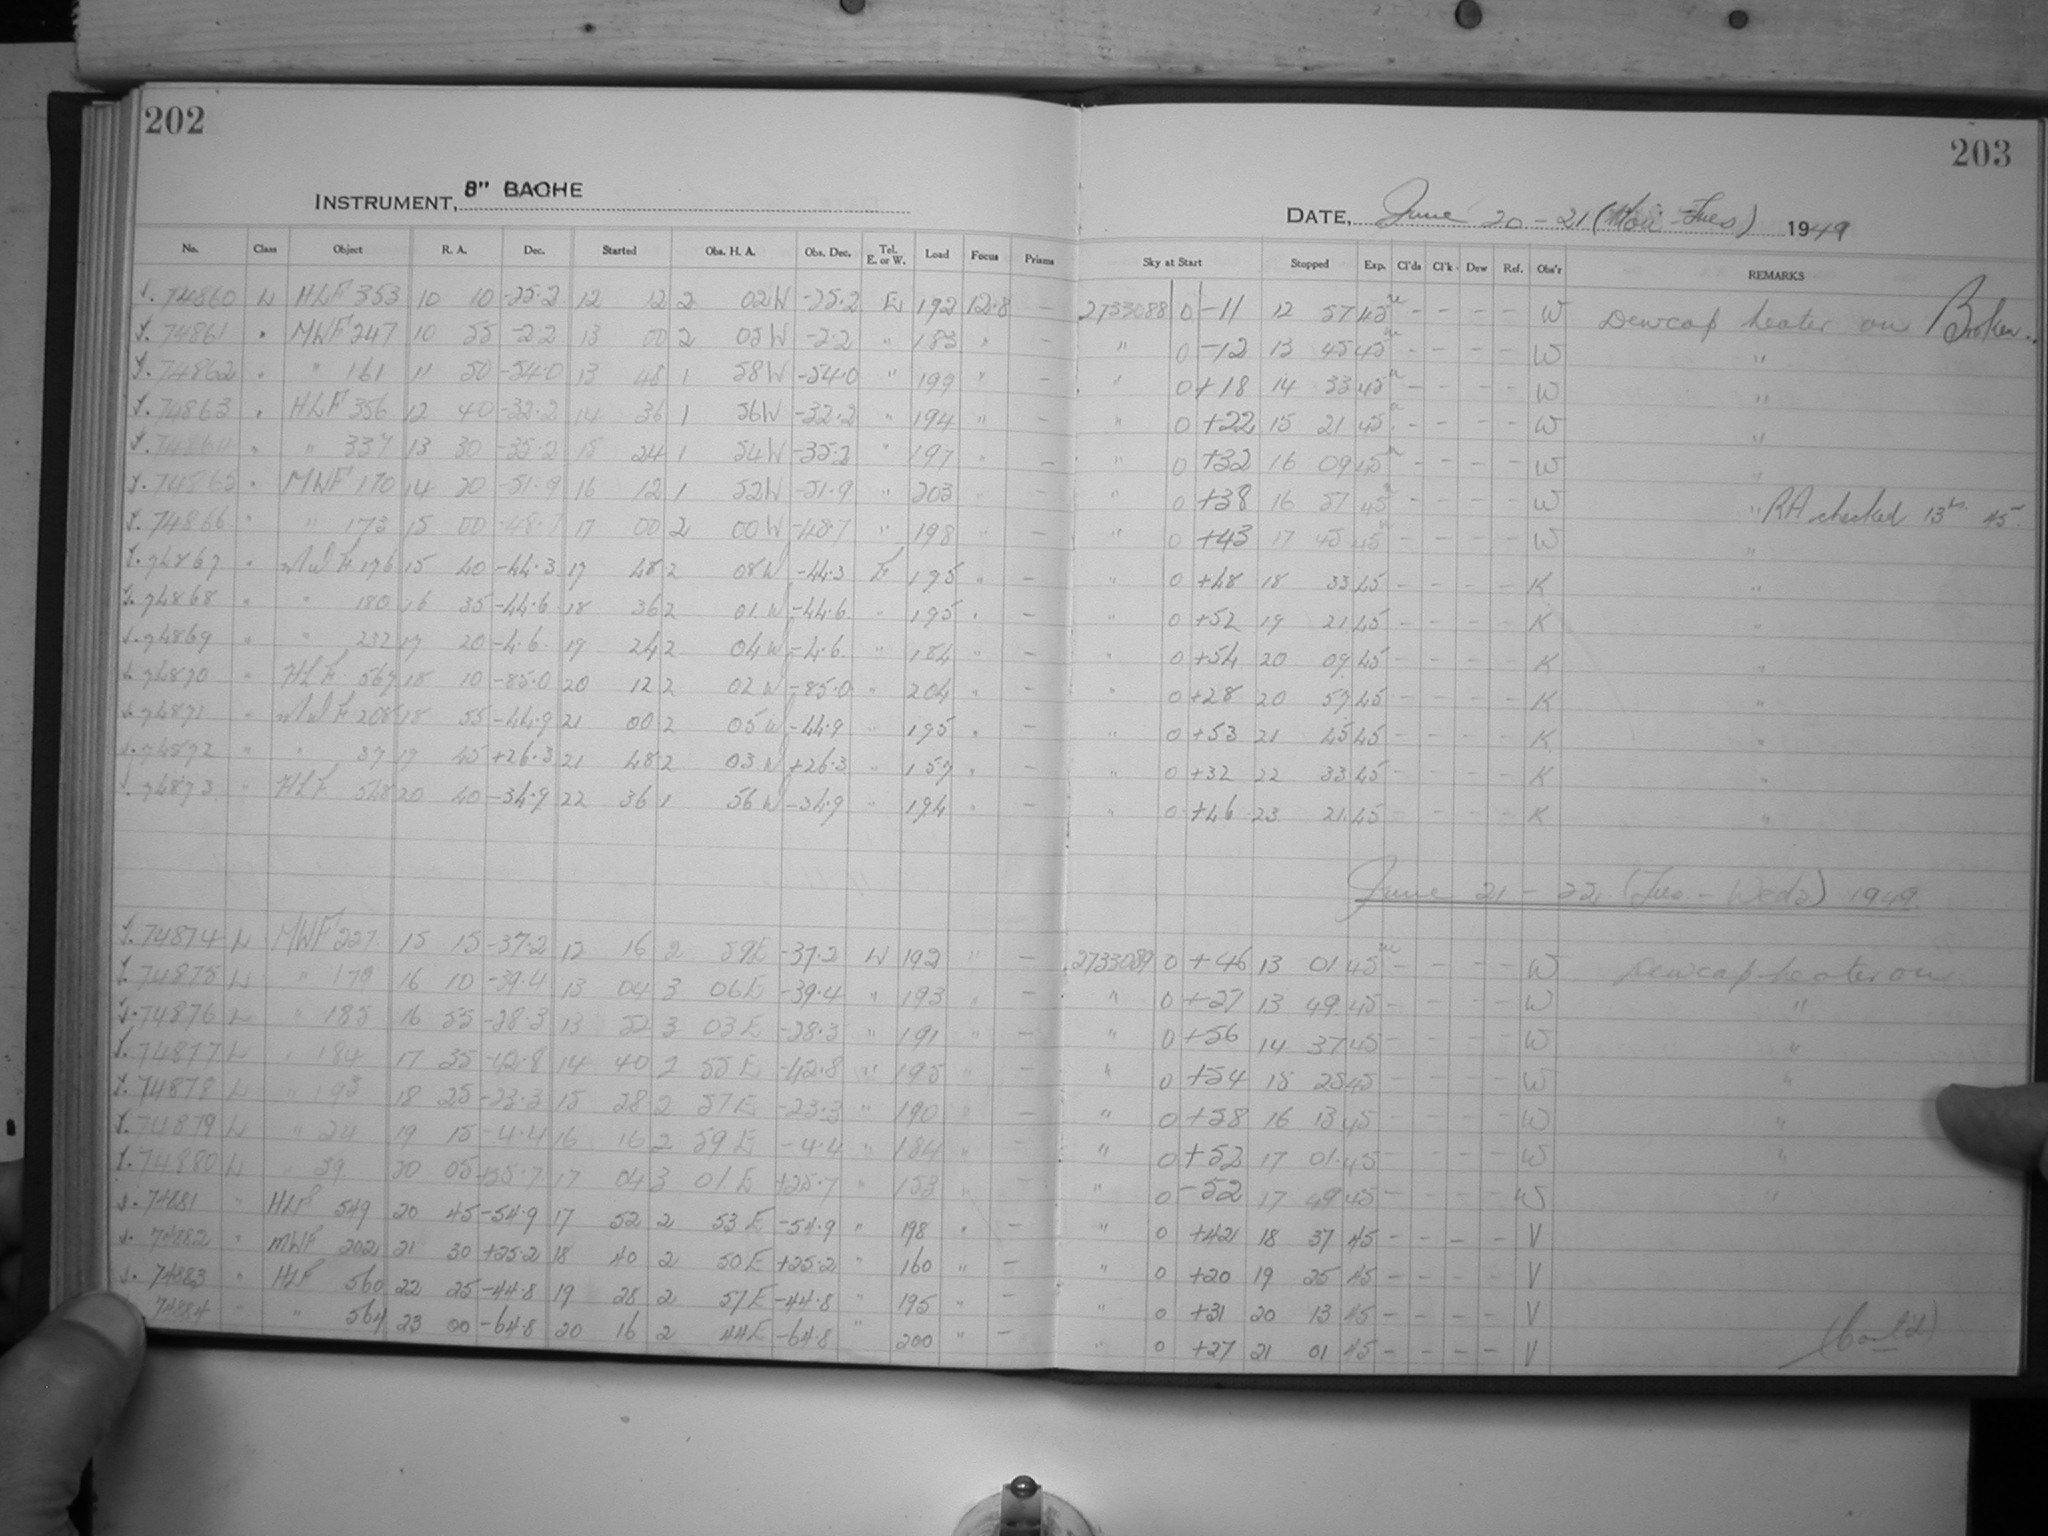 202
203
INSTRUMENT, 8" BACHE
DATE, June 20-21 (Mon-Tues) 1949
No. Class Object R. A. Dec. Started Obs. H. A. Obs. Dec. Tel. E. or W. Load Focus Prisms Sky at Start Stopped Exp. Cl'ds Cl'k Dew Ref. Obs'r REMARKS
74860 L HLF 353 10 10 -25.2 12 12 2 02W -25.2 E 192 12.8 — 2733088 0 -11 12 57 45m - - - - W Dewcap heater on Broken.
74861 " MWF 247 10 55 -2.2 13 00 2 05W -2.2 " 183 " — " 0 -12 13 45 45m - - - - W "
74862 " " 161 11 50 -54.0 13 48 1 58W -54.0 " 199 " — " 0 +18 14 33 45m - - - - W "
74863 " HLF 356 12 40 -32.2 14 36 1 56W -32.2 " 194 " — " 0 +22 15 21 45 - - - - W "
74864 " " 337 13 30 -35.2 15 24 1 54W -35.2 " 197 " — " 0 +32 16 09 45 - - - - W "
74865 " MWF 170 14 20 -51.9 16 12 1 52W -51.9 " 203 " — " 0 +38 16 57 45 - - - - W " RA checked 13hs. 45
74866 " " 173 15 00 -48.7 17 00 2 00W -48.7 " 198 " — " 0 +43 17 45 45 - - - - W "
74867 " MWF 176 15 40 -44.3 17 48 2 08W -44.3 E 195 " — " 0 +48 18 33 45 - - - - K "
74868 " " 180 16 35 -44.6 18 36 2 01W -44.6 " 195 " — " 0 +52 19 21 45 - - - - K "
74869 " " 232 17 20 -4.6 19 24 2 04W -4.6 " 184 " — " 0 +54 20 09 45 - - - - K "
74870 " HLF 567 18 10 -85.0 20 12 2 02W -85.0 " 204 " — " 0 +28 20 57 45 - - - - K "
74871 " MWF 208 18 55 -44.9 21 00 2 05W -44.9 " 195 " — " 0 +53 21 45 45 - - - - K "
74872 " " 37 19 45 +26.3 21 48 2 03W +26.3 " 157 " — " 0 +32 22 33 45 - - - - K "
74873 " HLF 548 20 40 -34.9 22 36 1 56W -34.9 " 194 " — " 0 +46 23 21 45 - - - - K "
June 21-22 (Tues-Weds) 1949.
74874 L MWF 227 15 15 -37.2 12 16 2 59E -37.2 W 192 " — 2733089 0 +46 13 01 45m - - - - W Dewcap heater on
74875 L " 179 16 10 -39.4 13 04 3 06E -39.4 " 193 " — " 0 +27 13 49 45 - - - - W "
74876 L " 185 16 55 -28.3 13 52 3 03E -28.3 " 191 " — " 0 +56 14 37 45 - - - - W "
74877 L " 184 17 35 -42.8 14 40 2 55E -42.8 " 195 " — " 0 +54 15 25 45 - - - - W "
74878 L " 193 18 25 -23.3 15 28 2 57E -23.3 " 190 " — " 0 +58 16 13 45 - - - - W "
74879 L " 24 19 15 -4.4 16 16 2 59E -4.4 " 184 " — " 0 +52 17 01 45 - - - - W "
74880 L " 39 20 05 +25.7 17 04 3 01E +25.7 " 153 " — " 0 -52 17 49 45 - - - - W "
74881 " HLF 549 20 45 -54.9 17 52 2 53E -54.9 " 198 " — " 0 +42 18 37 45 - - - - V
74882 " MWF 202 21 30 +25.2 18 40 2 50E +25.2 " 160 " — " 0 +20 19 25 45 - - - - V
74883 " HLF 560 22 25 -44.8 19 28 2 57E -44.8 " 195 " — " 0 +31 20 13 45 - - - - V
74884 " " 564 23 00 -64.8 20 16 2 44E -64.8 " 200 " — " 0 +27 21 01 45 - - - - V
(Cont'd)